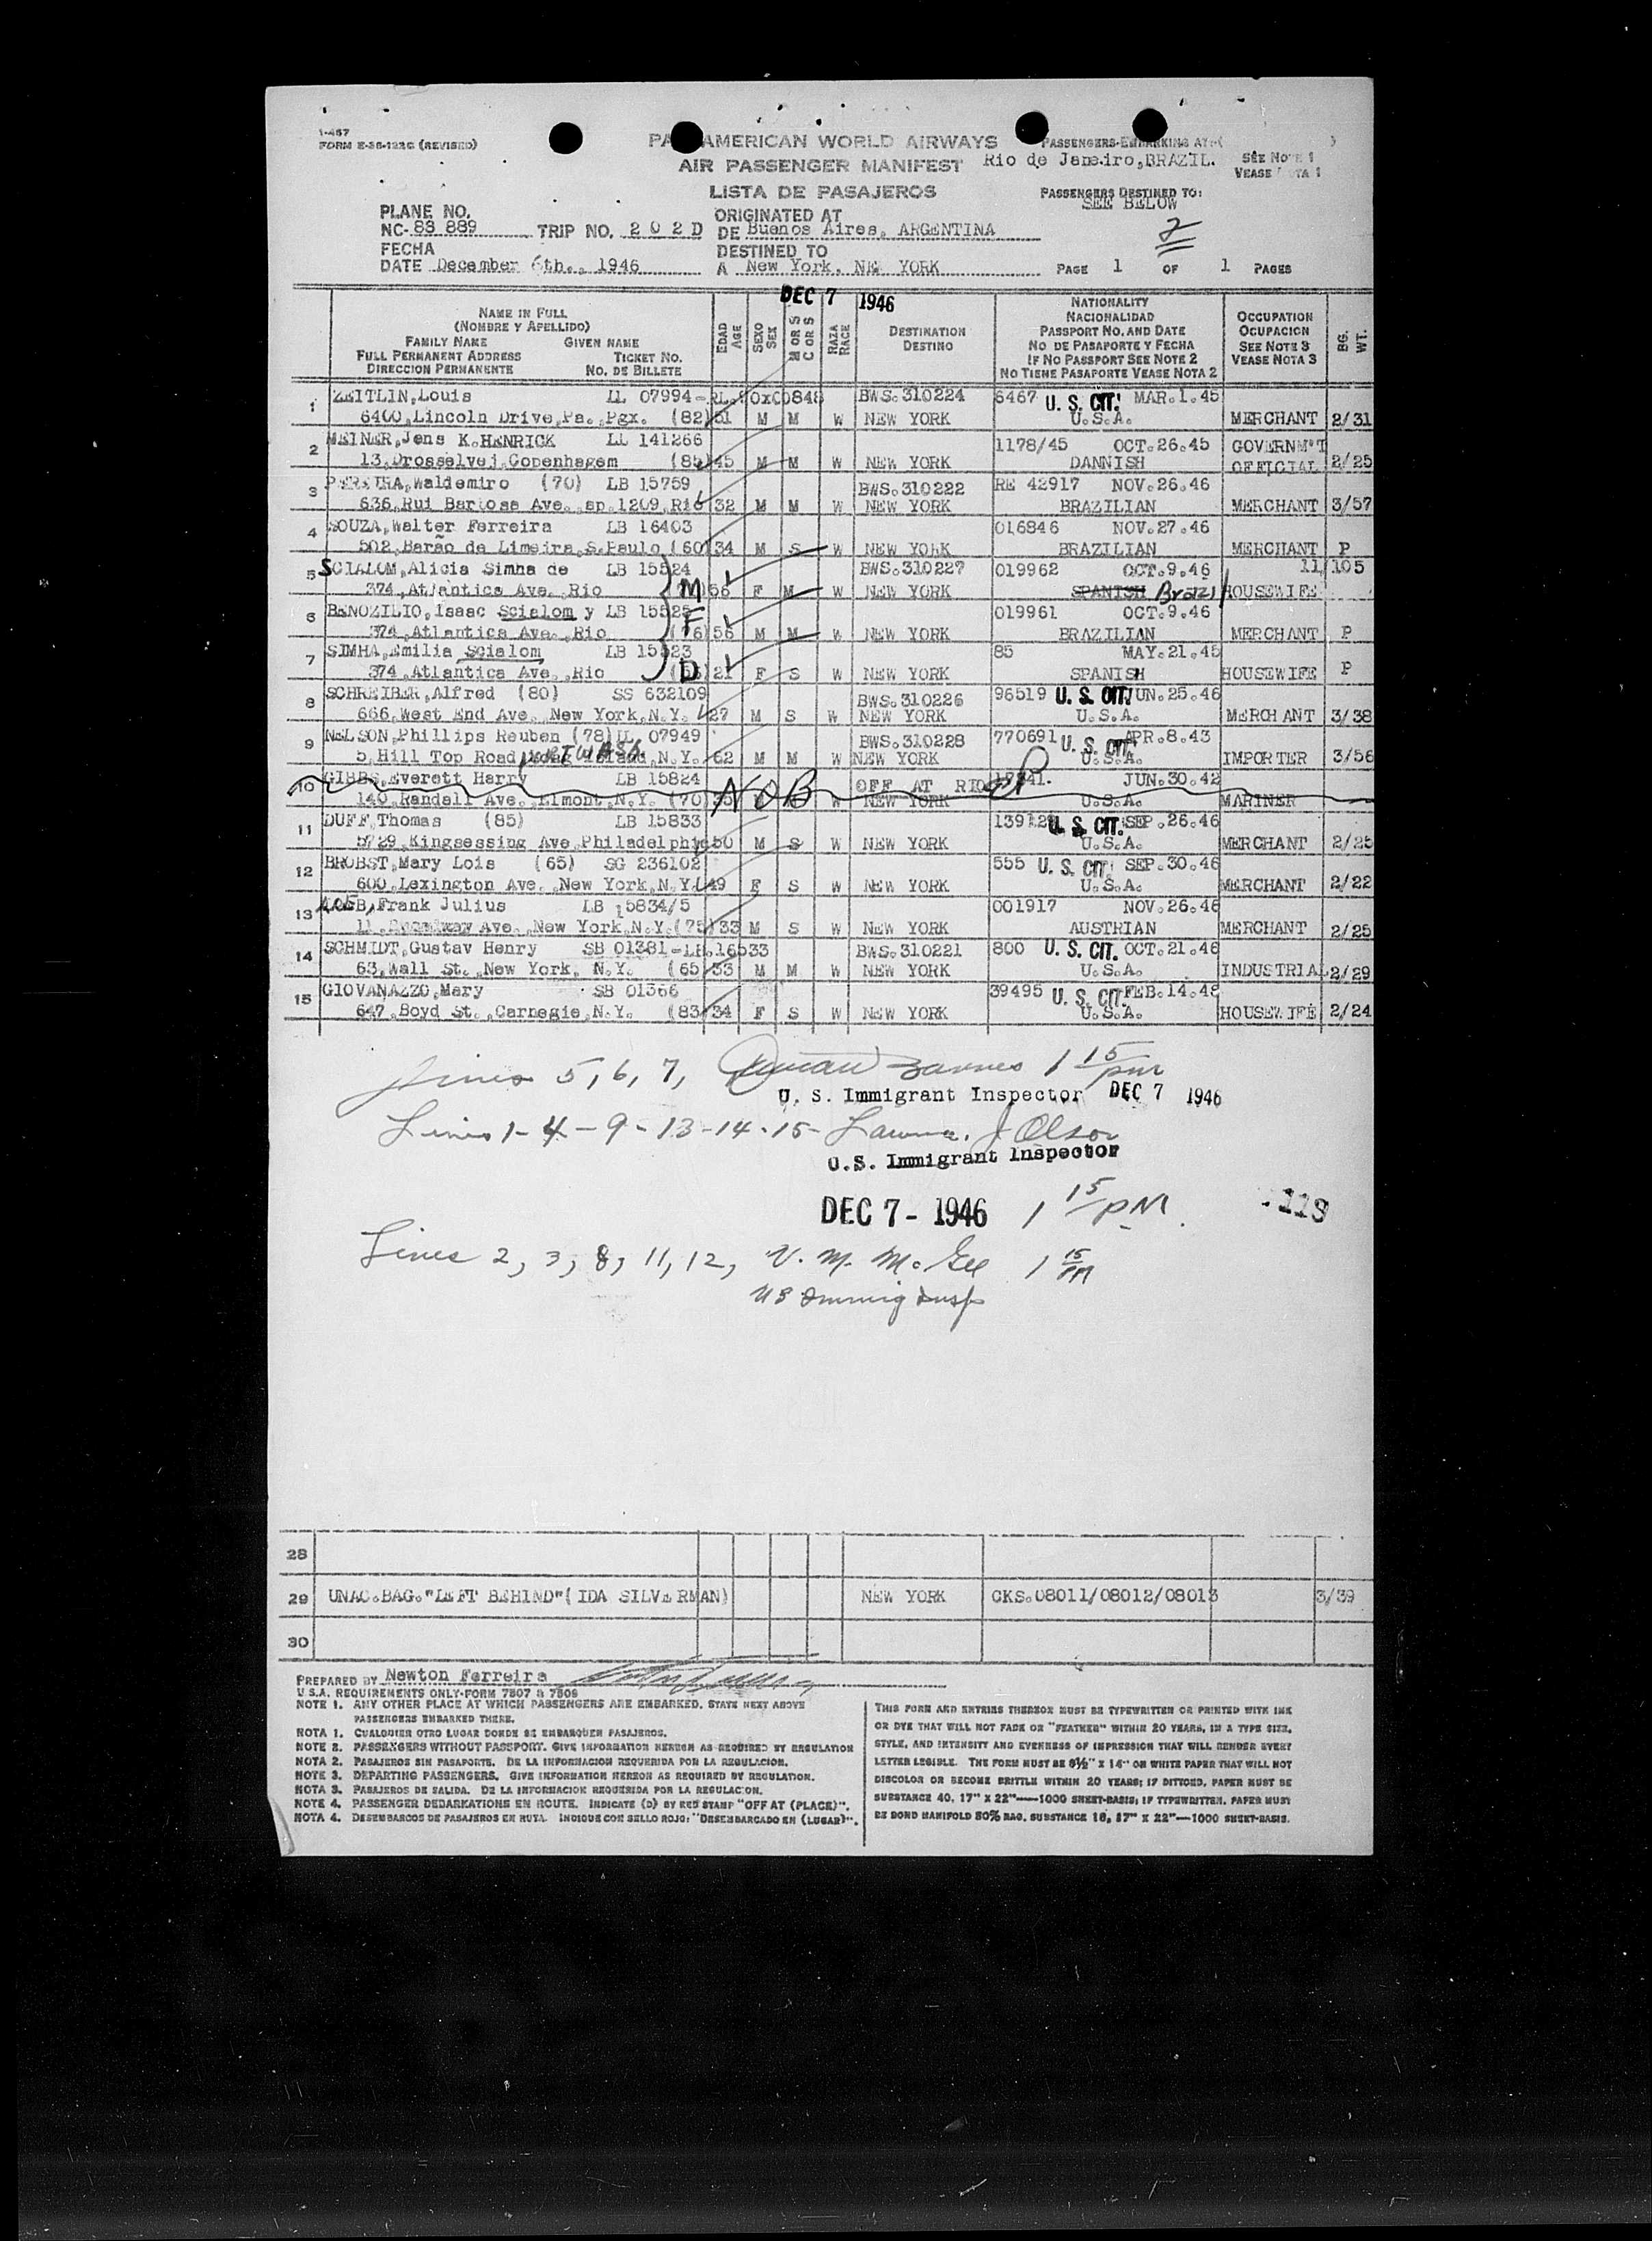 I-467
FORM E-36-122C (REVISED)
PAN AMERICAN WORLD AIRWAYS
AIR PASSENGER MANIFEST
LISTA DE PASAJEROS
PASSENGERS EMBARKING AT:(
Rio de Janeiro, BRAZIL.
SEE NOTE 1
VEASE NOTA 1
PASSENGERS DESTINED TO:
SEE BELOW
2
PLANE NO.
NC- 88 889 TRIP NO. 2 0 2 D
ORIGINATED AT
DE Buenos Aires, ARGENTINA
FECHA
DATE December 6th., 1946
DESTINED TO
A New York, NEW YORK
PAGE 1 OF 1 PAGES
DEC 7 1946
NAME IN FULL
(NOMBRE Y APELLIDO)
FAMILY NAME GIVEN NAME
FULL PERMANENT ADDRESS TICKET NO.
DIRECCION PERMANENTE NO. DE BILLETE
EDAD AGE
SEXO SEX
M OR S C OR S
RAZA RACE
DESTINATION
DESTINO
NATIONALITY
NACIONALIDAD
PASSPORT NO. AND DATE
NO DE PASAPORTE Y FECHA
IF NO PASSPORT SEE NOTE 2
NO TIENE PASAPORTE VEASE NOTA 2
OCCUPATION
OCUPACION
SEE NOTE 3
VEASE NOTA 3
BG. WT.
1 ZEITLIN, Louis LL 07994- BWS.310224 6467 U. S. CIT. MAR.1.45
6400, Lincoln Drive, Pa., Pgx. (82) 51 M M W NEW YORK U.S.A. MERCHANT 2/31
2 MEINER, Jens K. HENRICK LL 141266 1178/45 OCT.26.45 GOVERNM'T
13, Drosselvej, Copenhagem (85) 45 M M W NEW YORK DANNISH OFFICIAL 2/25
3 PEREIRA, Waldemiro (70) LB 15759 BWS.310222 RE 42917 NOV.26.46
636, Rui Barbosa Ave., ap. 1209, Rio 32 M M W NEW YORK BRAZILIAN MERCHANT 3/57
4 SOUZA, Walter Ferreira LB 16403 016846 NOV.27.46
502, Barão de Limeira, S. Paulo (60) 34 M S W NEW YORK BRAZILIAN MERCHANT P
5 SCIALOM, Alicia Simha de LB 15524 BWS.310227 019962 OCT.9.46 11/105
374, Atlantica Ave., Rio M 56 F M W NEW YORK SPANISH Brazil HOUSEWIFE
6 BENOZILIO, Isaac Scialom y LB 15525 019961 OCT.9.46
374, Atlantica Ave., Rio F (76) 56 M M W NEW YORK BRAZILIAN MERCHANT P
7 SIMHA, Emilia Scialom LB 15523 85 MAY.21.45
374, Atlantica Ave., Rio D 21 F S W NEW YORK SPANISH HOUSEWIFE P
8 SCHREIBER, Alfred (80) SS 632109 BWS.310226 96519 U. S. CIT. JUN.25.46
666, West End Ave., New York, N.Y. 27 M S W NEW YORK U.S.A. MERCHANT 3/38
9 NELSON, Phillips Reuben (78) LL 07949 BWS.310228 770691 U. S. CIT. APR.8.43
5, Hill Top Road, PORT WASH. N.Y. 62 M M W NEW YORK U.S.A. IMPORTER 3/56
10 GIBBS, Everett Harry LB 15824 NOB OFF AT RIO JUN.30.42
140, Randall Ave., Elmont, N.Y. (70) 35 W NEW YORK U.S.A. MARINER
11 DUFF, Thomas (85) LB 15833 U. S. CIT. SEP.26.46
5729, Kingsessing Ave, Philadelphia 50 M S W NEW YORK U.S.A. MERCHANT 2/25
12 BROBST, Mary Lois (65) SG 236102 555 U. S. CIT. SEP.30.46
600, Lexington Ave., New York, N.Y. 49 F S W NEW YORK U.S.A. MERCHANT 2/22
13 LOEB, Frank Julius LB 15834/5 001917 NOV.26.46
11, Broadway Ave., New York, N.Y. (75) 33 M S W NEW YORK AUSTRIAN MERCHANT 2/25
14 SCHMIDT, Gustav Henry SB 01381-LB.16533 BWS.310221 800 U. S. CIT. OCT.21.46
63, Wall St., New York, N.Y. (65) 53 M M W NEW YORK U.S.A. INDUSTRIAL 2/29
15 GIOVANAZZO, Mary SB 01366 39495 U. S. CIT. FEB.14.46
647, Boyd St., Carnegie, N.Y. (83) 34 F S W NEW YORK U.S.A. HOUSEWIFE 2/24
Lines 5, 6, 7, 1 15 pm
U. S. Immigrant Inspector DEC 7 1946
Lines 1-4-9-13-14-15- J Olson
U.S. Immigrant Inspector
DEC 7 - 1946 1 15 PM
119
Lines 2, 3, 8, 11, 12, V. M. McGee 1 15 PM
US Immig Insp
28
29 UNAC.BAG. "LEFT BEHIND" (IDA SILVERMAN) NEW YORK CKS.08011/08012/08013 3/39
30
PREPARED BY Newton Ferreira
U.S.A. REQUIREMENTS ONLY-FORM 7507 & 7509
NOTE 1. ANY OTHER PLACE AT WHICH PASSENGERS ARE EMBARKED. STATE NEXT ABOVE
PASSENGERS EMBARKED THERE.
NOTA 1. CUALQUIER OTRO LUGAR DONDE SE EMBARQUEN PASAJEROS.
NOTE 2. PASSENGERS WITHOUT PASSPORT. GIVE INFORMATION HEREON AS REQUIRED BY REGULATION
NOTA 2. PASAJEROS SIN PASAPORTE. DE LA INFORMACION REQUERIDA POR LA REGULACION.
NOTE 3. DEPARTING PASSENGERS. GIVE INFORMATION HEREON AS REQUIRED BY REGULATION.
NOTA 3. PASAJEROS DE SALIDA. DE LA INFORMACION REQUERIDA POR LA REGULACION.
NOTE 4. PASSENGER DEBARKATIONS EN ROUTE. INDICATE (D) BY RED STAMP "OFF AT (PLACE)".
NOTA 4. DESEMBARCOS DE PASAJEROS EN RUTA. INDIQUE CON SELLO ROJO: "DESEMBARCADO EN (LUGAR)".
THIS FORM AND ENTRIES THEREON MUST BE TYPEWRITTEN OR PRINTED WITH INK
OR DYE THAT WILL NOT FADE OR "FEATHER" WITHIN 20 YEARS, IN A TYPE SIZE,
STYLE, AND INTENSITY AND EVENNESS OF IMPRESSION THAT WILL RENDER EVERY
LETTER LEGIBLE. THE FORM MUST BE 8½" X 14" ON WHITE PAPER THAT WILL NOT
DISCOLOR OR BECOME BRITTLE WITHIN 20 YEARS; IF DITTOED, PAPER MUST BE
SUBSTANCE 40, 17" X 22"—1000 SHEET-BASIS; IF TYPEWRITTEN, PAPER MUST
BE BOND MANIFOLD 50% RAG, SUBSTANCE 18, 17" X 22"—1000 SHEET-BASIS.